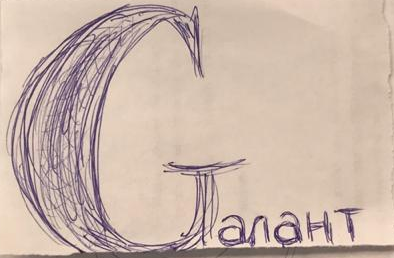 Gталант